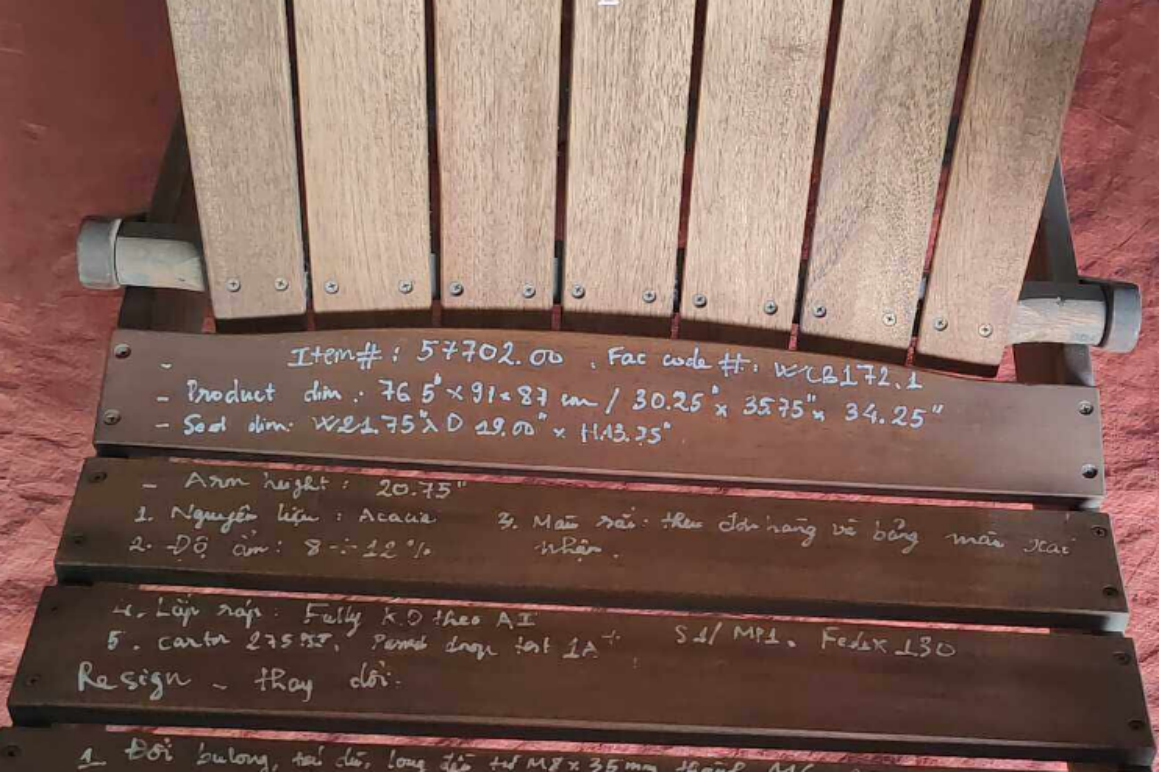 - Item# : 57702.00 . Fac code #: WCB172.1
- Product dim : 76.5 x 91 x 87 cm / 30.25" x 35.75" x 34.25"
- Seat dim: W21.75" x D 19.00" x H13.75"
- Arm height : 20.75"
1. Nguyên liệu : Acacia
2. Độ ẩm : 8 ÷ 12 %
3. Màu sắc: theo đơn hàng và bảng màu xác nhận .
4. Lắp ráp : Fully K.D theo AI
5. carton 275 . drop test 1A S1/ MP1. Fedex 130
Resign - thay đổi.
1. Đổi bulong, tán dù, long đền từ M8 x 35 mm thành M6